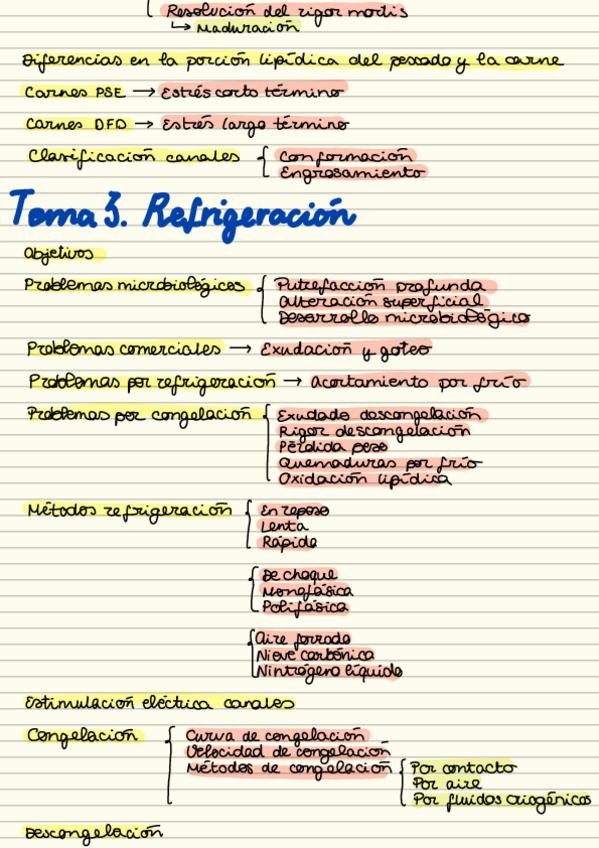 Resolución del rigor mortis
↳ Maduración
Diferencias en la porción lipídica del pescado y la carne
Carnes PSE → Estrés corto término
Carnes DFD → Estrés largo término
Clasificación canales { Conformación
Engrasamiento
Tema 3. Refrigeración
Objetivos
Problemas microbiológicos { Putrefacción profunda
Alteración superficial
Desarrollo microbiológico
Problemas comerciales → Exudación y goteo
Problemas por refrigeración → Acortamiento por frío
Problemas por congelación { Exudado descongelación
Rigor descongelación
Pérdida peso
Quemaduras por frío
Oxidación lipídica
Métodos refrigeración { En reposo
Lenta
Rápida
{ De choque
Monofásica
Polifásica
{ Aire forzado
Nieve carbónica
Nintrógeno líquido
Estimulación eléctrica canales
Congelación { Curva de congelación
Velocidad de congelación
Métodos de congelación { Por contacto
Por aire
Por fluidos criogénicos
Descongelación